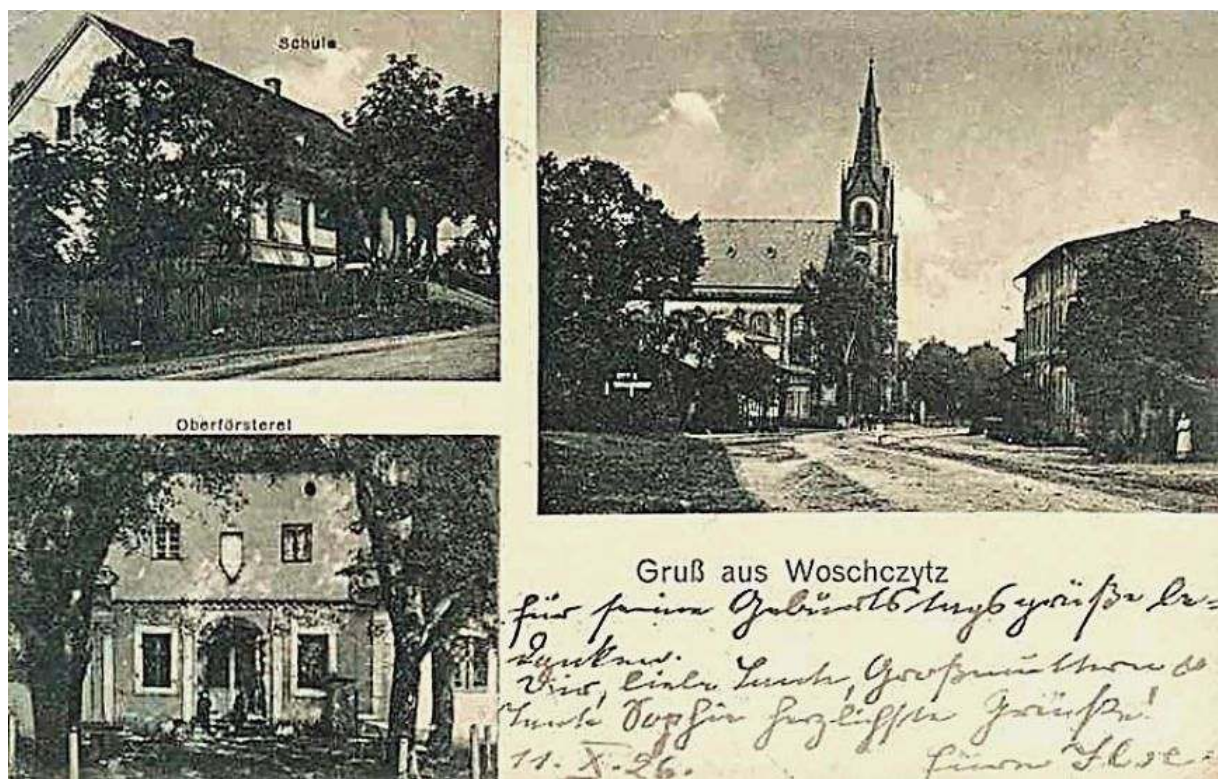 Schule
Oberförsterei
Gruß aus Woschczytz
für seine Geburtstagsgrüße be=
danken.
Dir, liebe Tante, Großmuttern
Tante Sophie herzlichste Grüße!
11. X. 26. Eure Ilse